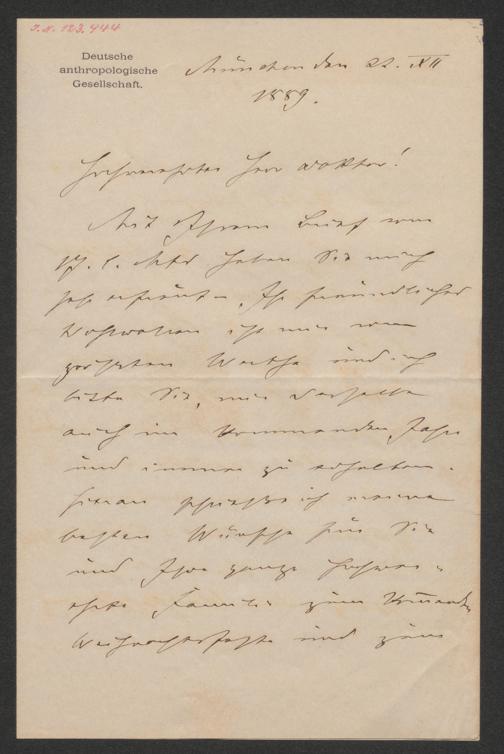 J.N. 123.444
Deutsche
anthropologische
Gesellschaft.
München den 22. XII
1889.
Hochverehrter Herr Doktor!
Mit Ihrem Brief vom
17. l. Mts haben Sie mich
sehr erfreut. Ihr freundliches
Wohlwollen ist mir vom
größten Werthe und ich
bitte Sie, mir dasselbe
auch im kommenden Jahr
und immer zu erhalten.
Hieran schließe ich meine
besten Wünsche für Sie
und Ihre ganze hochver-
ehrte Familie zum kommenden
Weihnachtsfeste und zum